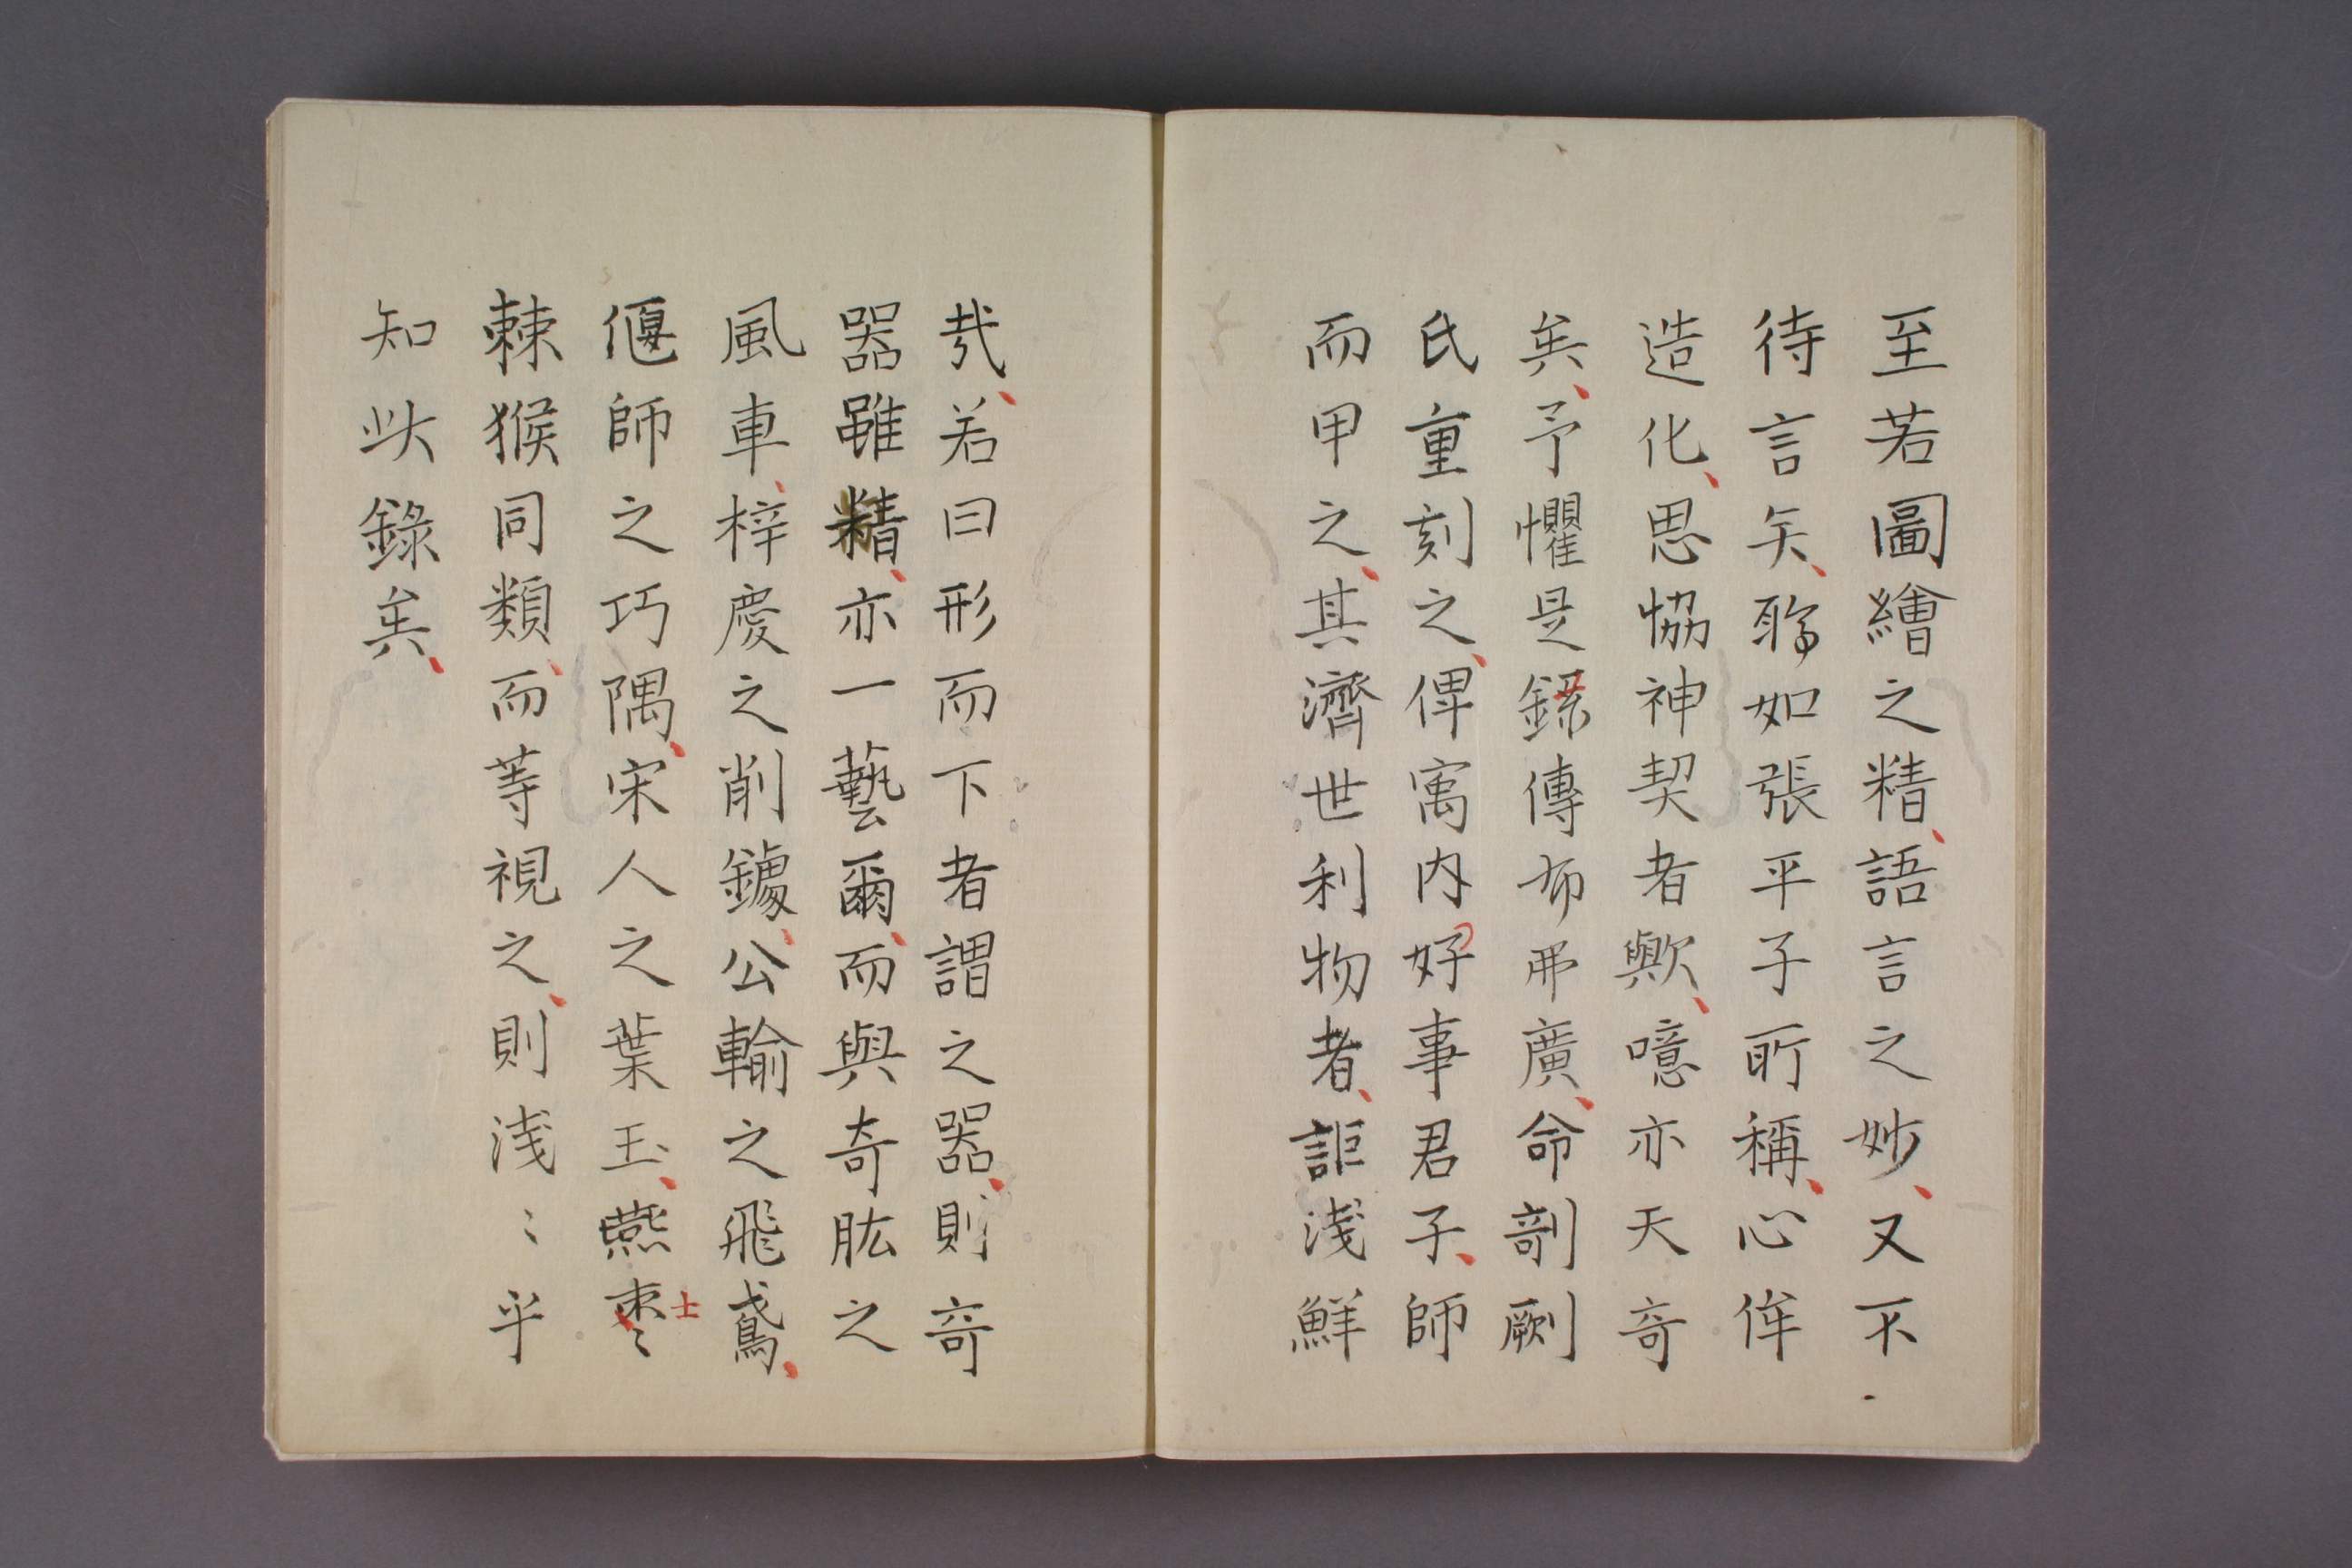 至若圖繪之精語言之妙又不
待言矣殆如張平子所稱心侔
造化思協神契者歟噫亦天奇
矣予懼是錄傳布弗廣命剞劂
氏重刻之俾寓內好事君子師
而甲之其濟世利物者詎淺鮮
㢤若曰形而下者謂之器則奇
器雖精亦一藝爾而與奇肱之
風車梓慶之削鐻公輸之飛鳶
偃師之巧隅宋人之葉玉燕棗士
棘猴同類而等視之則淺〻乎
知此錄矣